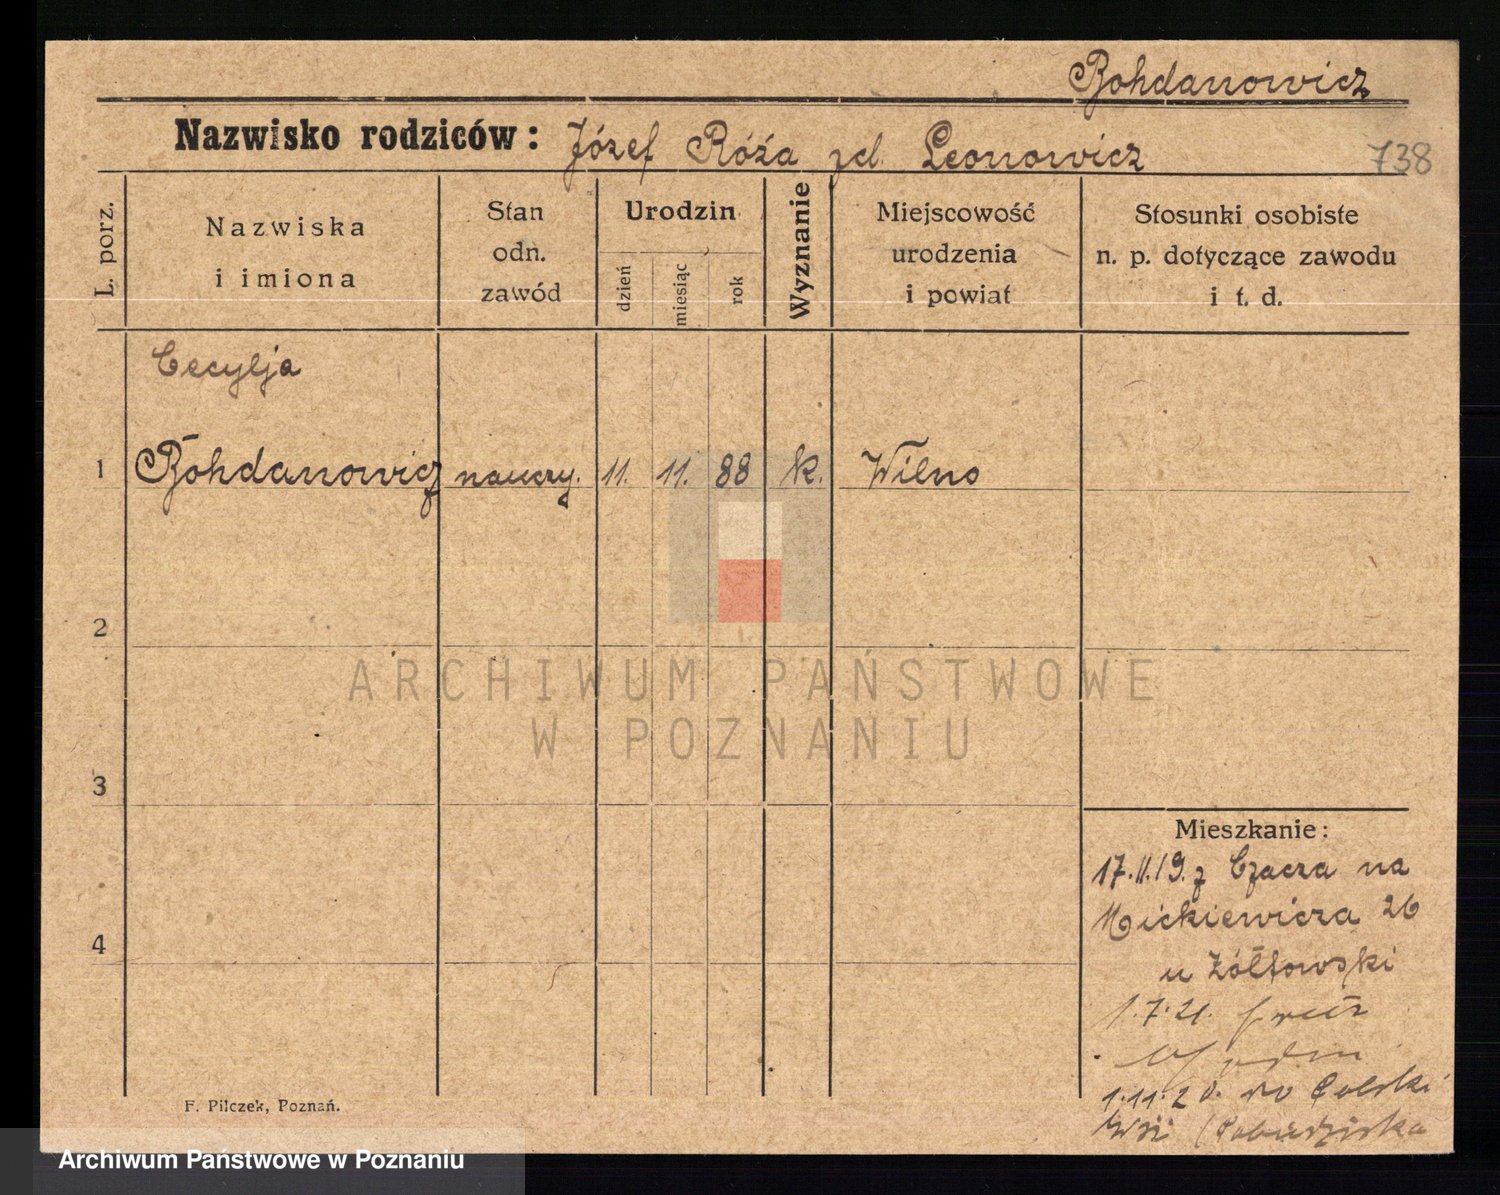 Bohdanowicz
Nazwisko rodziców: Józef Róża zd. Leonowicz
738
L. porz.
Nazwiska
i imiona
Stan
odn.
zawód
Urodzin
dzień
miesiąc
rok
Wyznanie
Miejscowość
urodzenia
i powiat
Stosunki osobiste
n. p. dotyczące zawodu
i t. d.
Cecylja
1 Bohdanowicz nauczy. 11. 11. 88 k. Wilno
2
3
4
Mieszkanie:
17.II.19. z Czacza na
Mickiewicza 26
u Żółtowski
1.7.21.
1.11.20. do Polski
Wsi
F. Pilczek, Poznań.
ARCHIWUM PAŃSTWOWE
W POZNANIU
Archiwum Państwowe w Poznaniu